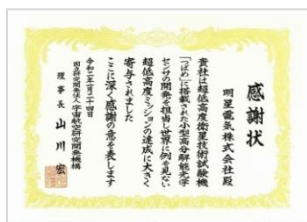 感謝状
明星電気株式会社殿
貴社は超低高度衛星技術試験機
「つばめ」に搭載された小型高分解能光学
センサの開発を担当し世界に例を見ない
超低高度ミッションの達成に大きく
寄与されました
ここに深く感謝の意を表します
令和二年一月二十四日
国立研究開発法人宇宙航空研究開発機構
理事長 山川宏